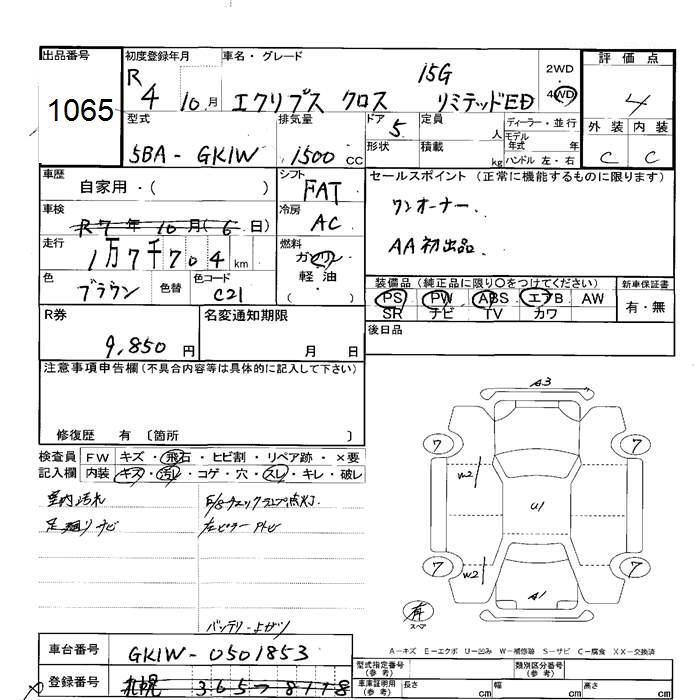 出品番号 1065
初度登録年月 R4 10月
車名・グレード 15G
エクリプス クロス リミテッドED
2WD・4WD
評価点 4
外装 内装
C C
型式 5BA-GK1W
排気量 1500 CC
ドア 5
形状
定員 人
積載 kg
ディーラー・並行
モデル年式 年
ハンドル 左・右
車歴 自家用・( )
シフト FAT
車検 R7年10月(6日)
冷房 AC
走行 1万7千704km
燃料 ガソリン・軽油
( ・ )
色 ブラウン 色替 色コード C21
セールスポイント (正常に機能するものに限ります)
ワンオーナー、
AA初出品、
装備品(純正品に限り〇をつけてください)
PS PW ABS エアB AW
SR ナビ TV カワ
新車保証書
有・無
後日品
R券 9,850円
名変通知期限 月 日
注意事項申告欄(不具合内容等は具体的に記入して下さい)
修復歴 有 〔箇所 〕
検査員記入欄
FW キズ・飛石・ヒビ割・リペア跡・×要
内装 キズ・汚レ・コゲ・穴・スレ・キレ・破レ
室内汚れ
足廻りサビ
E/gチェックランプ点灯、
左ピラー
バッテリーよわり
A3
7 7
W2
U1
W2
7 7
A1
有
スペア
A-キズ E-エクボ U-凹み W-補修跡 S-サビ C-腐食 XX-交換済
車台番号 GK1W-0501853
登録番号 札幌 365 8118
型式指定番号(参考)
類別区分番号(参考)
車庫証明用(参考) 長さ cm 幅 cm 高さ cm